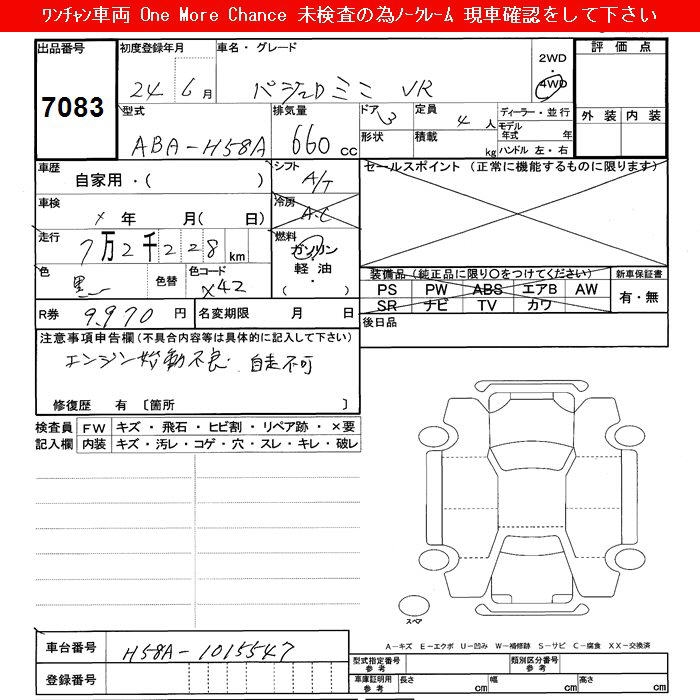 ﾜﾝﾁｬﾝ車両 One More Chance 未検査の為ﾉｰｸﾚｰﾑ 現車確認をして下さい
出品番号 初度登録年月 車名・グレード 評価点
7083 24 6月 パジェロミニ VR 2WD・4WD
型式 排気量 ドア 定員 ディーラー・並行 外装 内装
ABA-H58A 660cc 3 4人 モデル年式 年
形状 積載 kg ハンドル 左・右
車歴 シフト セールスポイント (正常に機能するものに限ります)
自家用・( ) A/T
車検 冷房
× 年 月( 日) A.C
走行 燃料
7万2千228km ガソリン・軽油・( )
色 色替 色コード 装備品(純正品に限り○をつけてください) 新車保証書
黒 X42 PS PW ABS エアB AW 有・無
SR ナビ TV カワ
R券 9,970円 名変期限 月 日 後日品
注意事項申告欄(不具合内容等は具体的に記入して下さい)
エンジン始動不良. 自走不可
修復歴 有〔箇所 〕
検査員 FW キズ・飛石・ヒビ割・リペア跡・×要
記入欄 内装 キズ・汚レ・コゲ・穴・スレ・キレ・破レ
スペア
A-キズ E-エクボ U-凹み W-補修跡 S-サビ C-腐食 XX-交換済
車台番号 H58A-1015547
登録番号
型式指定番号 参考 類別区分番号 参考
車庫証明用 参考 長さ cm 幅 cm 高さ cm